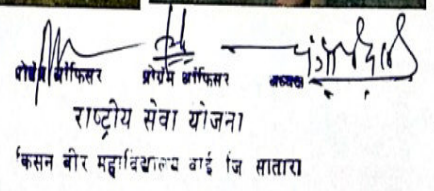 प्रोग्रेम ऑफिसर प्रोग्रेम ऑफिसर अध्यक्ष
राष्ट्रीय सेवा योजना
किसन वीर महाविद्यालय वाई जि सातारा